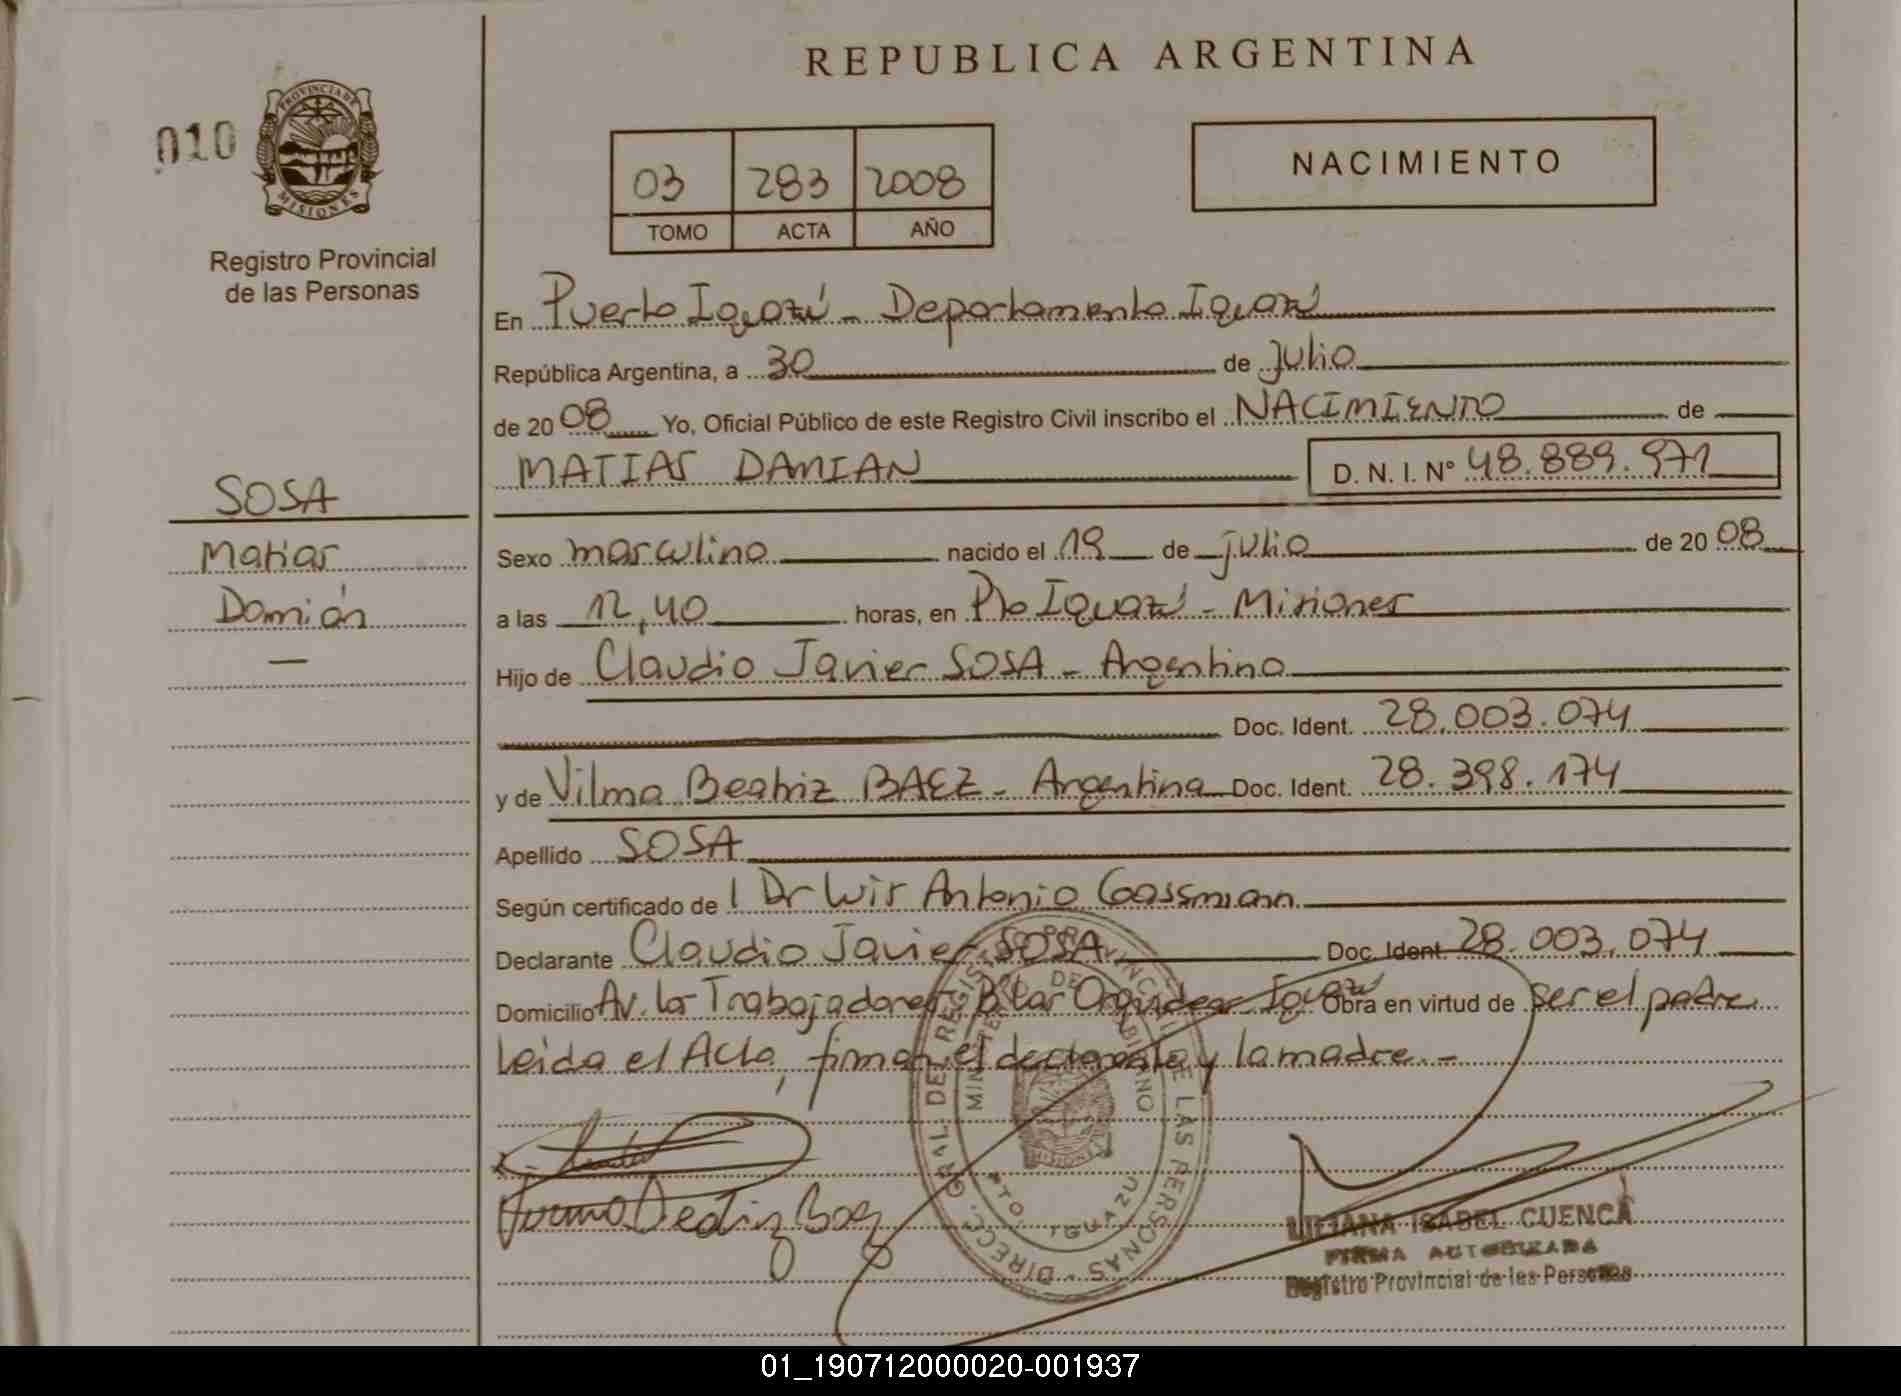 REPUBLICA ARGENTINA
010
PROVINCIA DE
MISIONES
Registro Provincial
de las Personas
03 283 2008
TOMO ACTA AÑO
NACIMIENTO
En Puerto Iguazú - Departamento Iguazú
República Argentina, a 30 de julio
de 2008 Yo, Oficial Público de este Registro Civil inscribo el NACIMIENTO de
MATIAS DAMIAN D. N. I. Nº 48.889.971
SOSA
Matias
Damián
—
Sexo masculino nacido el 19 de julio de 2008
a las 12,40 horas, en Pto Iguazú - Misiones
Hijo de Claudio Javier SOSA - Argentino
Doc. Ident. 28.003.074
y de Vilma Beatriz BAEZ - Argentina Doc. Ident. 28.398.174
Apellido SOSA
Según certificado de l Dr Luis Antonio Gassmann
Declarante Claudio Javier SOSA Doc. Ident. 28.003.074
Domicilio Av. los Trabajadores Bº las Orquideas Iguazú Obra en virtud de ser el padre
Leida el Acta, firman el declarante y la madre. -
DIRECC. GRAL. DEL REGISTRO PROVINCIAL DE LAS PERSONAS
PTO. IGUAZU
MISIONES
LILIANA ISABEL CUENCA
FIRMA AUTORIZADA
Registro Provincial de las Personas
01_190712000020-001937